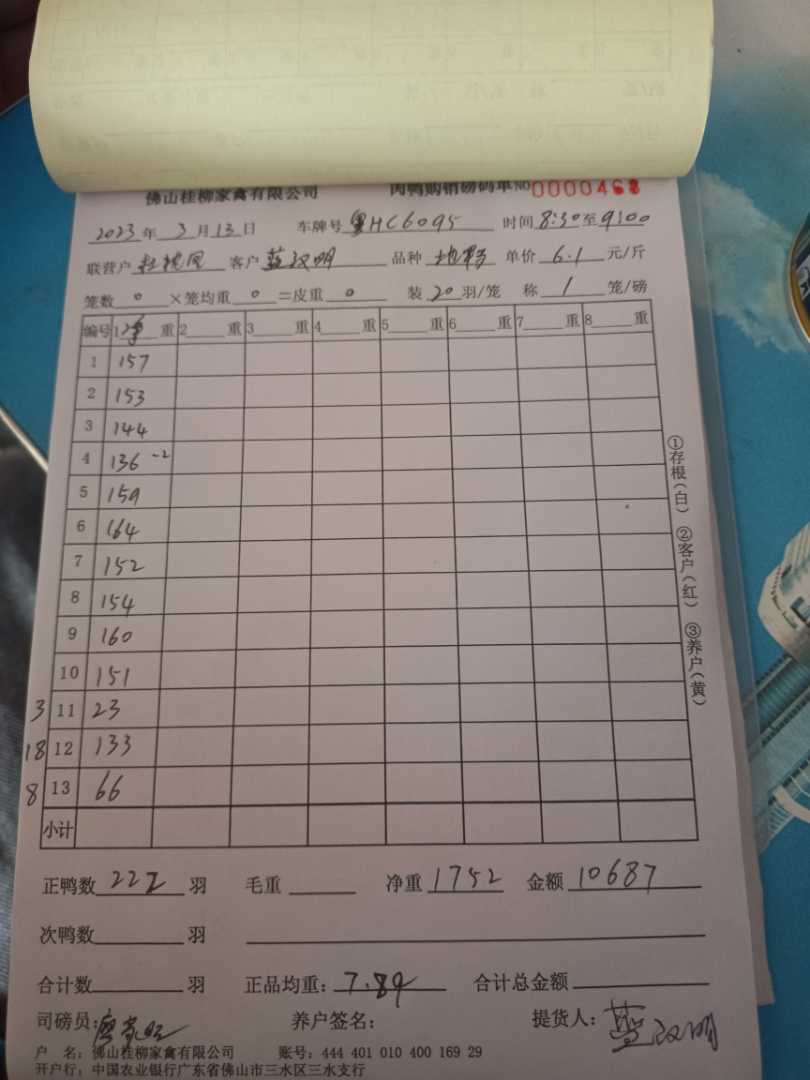 佛山桂柳家禽有限公司 肉鸭购销磅码单 No 0000468
2023年3月13日 车牌号 粤HC6095 时间 8:30至9:00
联营户 客户 蓝汉明 品种 单价 6.1 元/斤
笼数 0 ×笼均重 0 =皮重 0 装 20 羽/笼 称 1 笼/磅
编号 1 净 重 2 重 3 重 4 重 5 重 6 重 7 重 8 重
1 157
2 153
3 144
4 136 -2
5 159
6 164
7 152
8 154
9 160
10 151
3 11 23
18 12 133
8 13 66
小计
正鸭数 222 羽 毛重 净重 1752 金额 10687
次鸭数 羽
合计数 羽 正品均重: 7.89 合计总金额
司磅员: 养户签名: 提货人: 蓝汉明
户 名: 佛山桂柳家禽有限公司 账号: 444 401 010 400 169 29
开户行: 中国农业银行广东省佛山市三水区三水支行
①存根(白) ②客户(红) ③养户(黄)